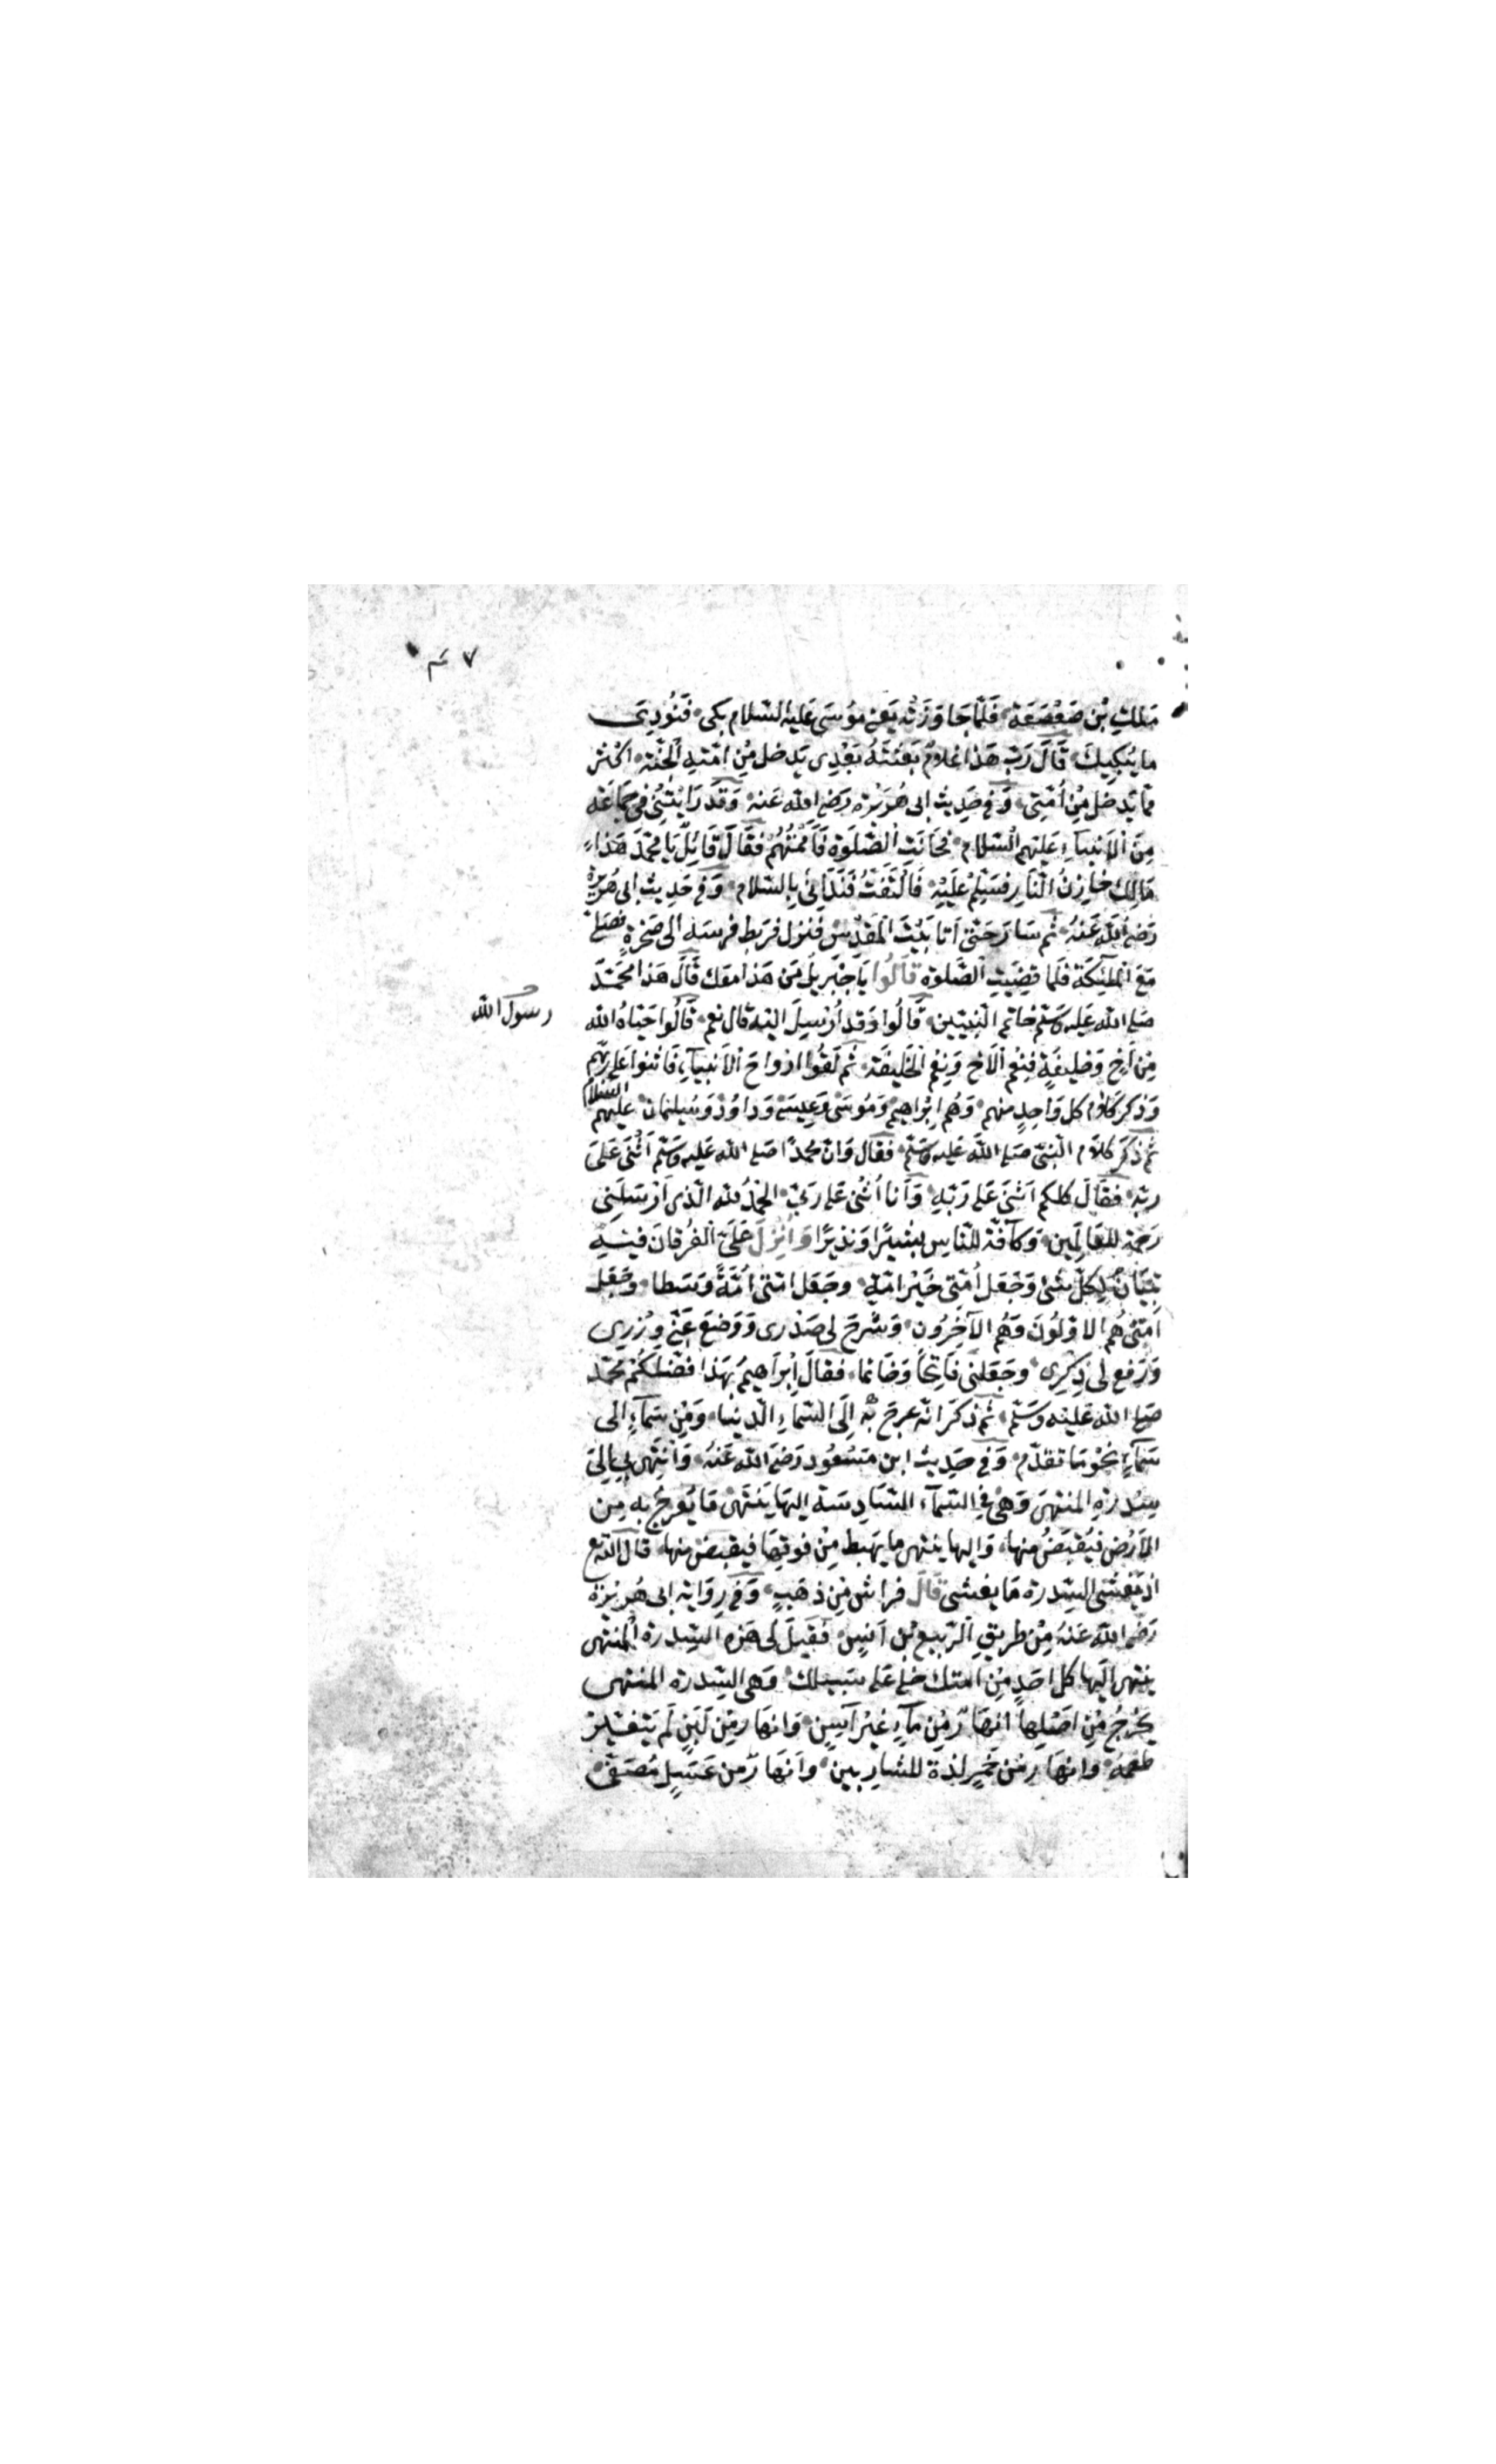 ٧ ٤م
مٰلِكِ بْنِ صَعْصَعَةَ فَلَمَّا جَاوَزْتُه يَعْنِى مُوسَى عَلَيْهِ السَّلام بَكَى فَنُودِىَ
ما يُبْكِيكَ قَالَ رَبِّ هَذَا غلامٌ بَعَثْتَهُ بَعْدِى يَدخل مِنْ امّتهِ الْجنّةَ اكْثر
مّما يَدخل مِنْ اُمّتِى وَفى حَدِيث ابى هُرَيْرَة رَضى الله عَنه وَقَد رَاَيْتُنِى فى جَمَاعَة
مِنَ الْاَنْبِيآءِ عَلَيهم السَّلام فحَانَتِ الصَّلَوة فَاَمَمْتُهُمْ فَقَالَ قَائِلٌ يَا محمّد هَذَا
مَالِكٌ خَازِنُ النّارِ فَسَلِّمْ عَلَيْهِ فَالْتَفَتُّ فَبَدَاَنِى بِالسَّلام وَفى حَدِيث ابى هُرَيْرَة
رَضى اللهُ عَنْهُ ثُم سَارَ حَتّى اَتَا بَيْتَ الْمَقْدِس فَنزل فَرَبط فرسَه الى صَخْرَةٍ فصَلّى
مَعَ الْملَئِكَة فَلمّا قضِيَتِ الصَّلوة قَالُوا يَا جِبْرِيلُ مَن هَذَا مَعَك قَالَ هَذَا محَمّدٌ
رسول الله
صَلى الله عَليه وَسَلّم خَاتم النّبِيّين قَالُوا وَقد اُرْسِلَ اليْه قال نعم قَالُوا حَيّاهُ الله
مِن اَخٍ وَخليفَةٍ فَنِعْم الْاَخ وَنِعْم الخَلِيفَة ثُم لَقُوا ارْوَاحَ الْاَنبيآءِ فَاَثنوا عَلى رَبّهم
وَذكر كَلام كلّ وَاحِدٍ منهم وَهُم اِبْرَاهِيم وَمُوسَى وَعِيسَى وَدَاوُدَ وَسُلَيمَان عليهم السّلام
ثم ذَكَرَ كَلَامَ النّبىّ صَلى اللهُ عَليه وَسَلّم فقال وَانّ محمّدًا صَلى الله عَليه وَسَلّم اَثْنَى عَلىَ
ربّه فَقَالَ كلكم اَثنَى عَلى رَبّهِ وَاَنا اُثْنى عَلى رَبّى الحَمْدُ لله الّذى اَرْسَلَنِى
رَحمَة للعَالمِين وَكآفّة للنّاسِ بَشيرًا وَنَذيرًا وَاَنْزَلَ عَلىَّ الْفُرْقَانَ فِيهِ
تِبْيَانٌ لِكلّ شئ وَجَعَلَ اُمّتِى خَيْر امّةٍ وجَعَل امّتى اُمّةً وَسَطا وَجَعَل
اُمّتى هُم الاوّلُونَ وَهُم الآخِرُون وَشَرَحَ لى صَدْرى وَوَضَع عَنّى وِزْرِى
وَرَفع لى ذِكْرِى وجَعَلنى فَاتِحًا وَخَاتما فقَالَ اِبْرَاهِيمُ بهَذا فَضَلَكُمْ محمّد
صَلى الله عَليْه وَسَلّم ثم ذكَرَ انّه عرِجَ بِهِ اِلَى السَّمآءِ الدّنيا وَمِن سَمآءٍ الى
سَمآءٍ نحْو مَا تقدّم وَفى حَدِيث ابن مَسْعُود رَضىَ الله عَنْهُ وَانتَهى بى اِلَى
سِدْرَةِ المنتهَى وَهْىَ فى السّمآءِ السّادِسَة اليهَا يَنْتَهى مَا يُعْرجُ بِه مِن
الْاَرْضِ فَيُقبَضُ منها وَاليها ينتهى ما يَهبط مِنْ فوقِهَا فيقبض منها قال الله تع
اذ يَغْشَى السّدرة مَا يغشى قَالَ فراش مِن ذهَبٍ وَفى رِوَايَة ابى هُرَيْرَة
رَضى الله عَنهُ مِنْ طريقِ الرّبيع بْنِ اَنسٍ فَقيلَ لى هَذِه السّدرة المنتهى
ينتهى اليها كل احَدٍ مِن امتك خلى عَلى سَبيلك وَهى السّدرة المنتهى
يَخرُجُ مِن اَصْلِهَا انْهَارٌ مِن مآءٍ غَيْر آسِنٍ وَانهَار مِن لَبَنٍ لَم يَتغَيّر
طعمهُ وانهَار مِن خَمرٍ لذة للشاربين وَاَنهَارٌ من عَسَلٍ مُصَفّى